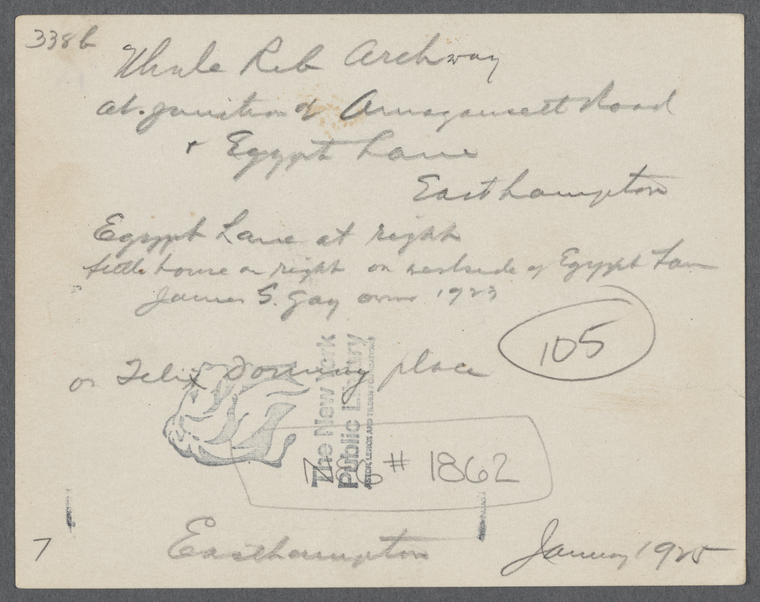 338b
Whale Rib Archway
at junction of Amagansett Road
+ Egypt Lane
Easthampton
Egypt Lane at right
little house on right on westside of Egypt Lane
James S. Gay owns 1923
105
on Felix Dominy place
The New York
Public Library
ASTOR, LENOX AND TILDEN FOUNDATIONS
# 1862
7
Easthampton
January 1925